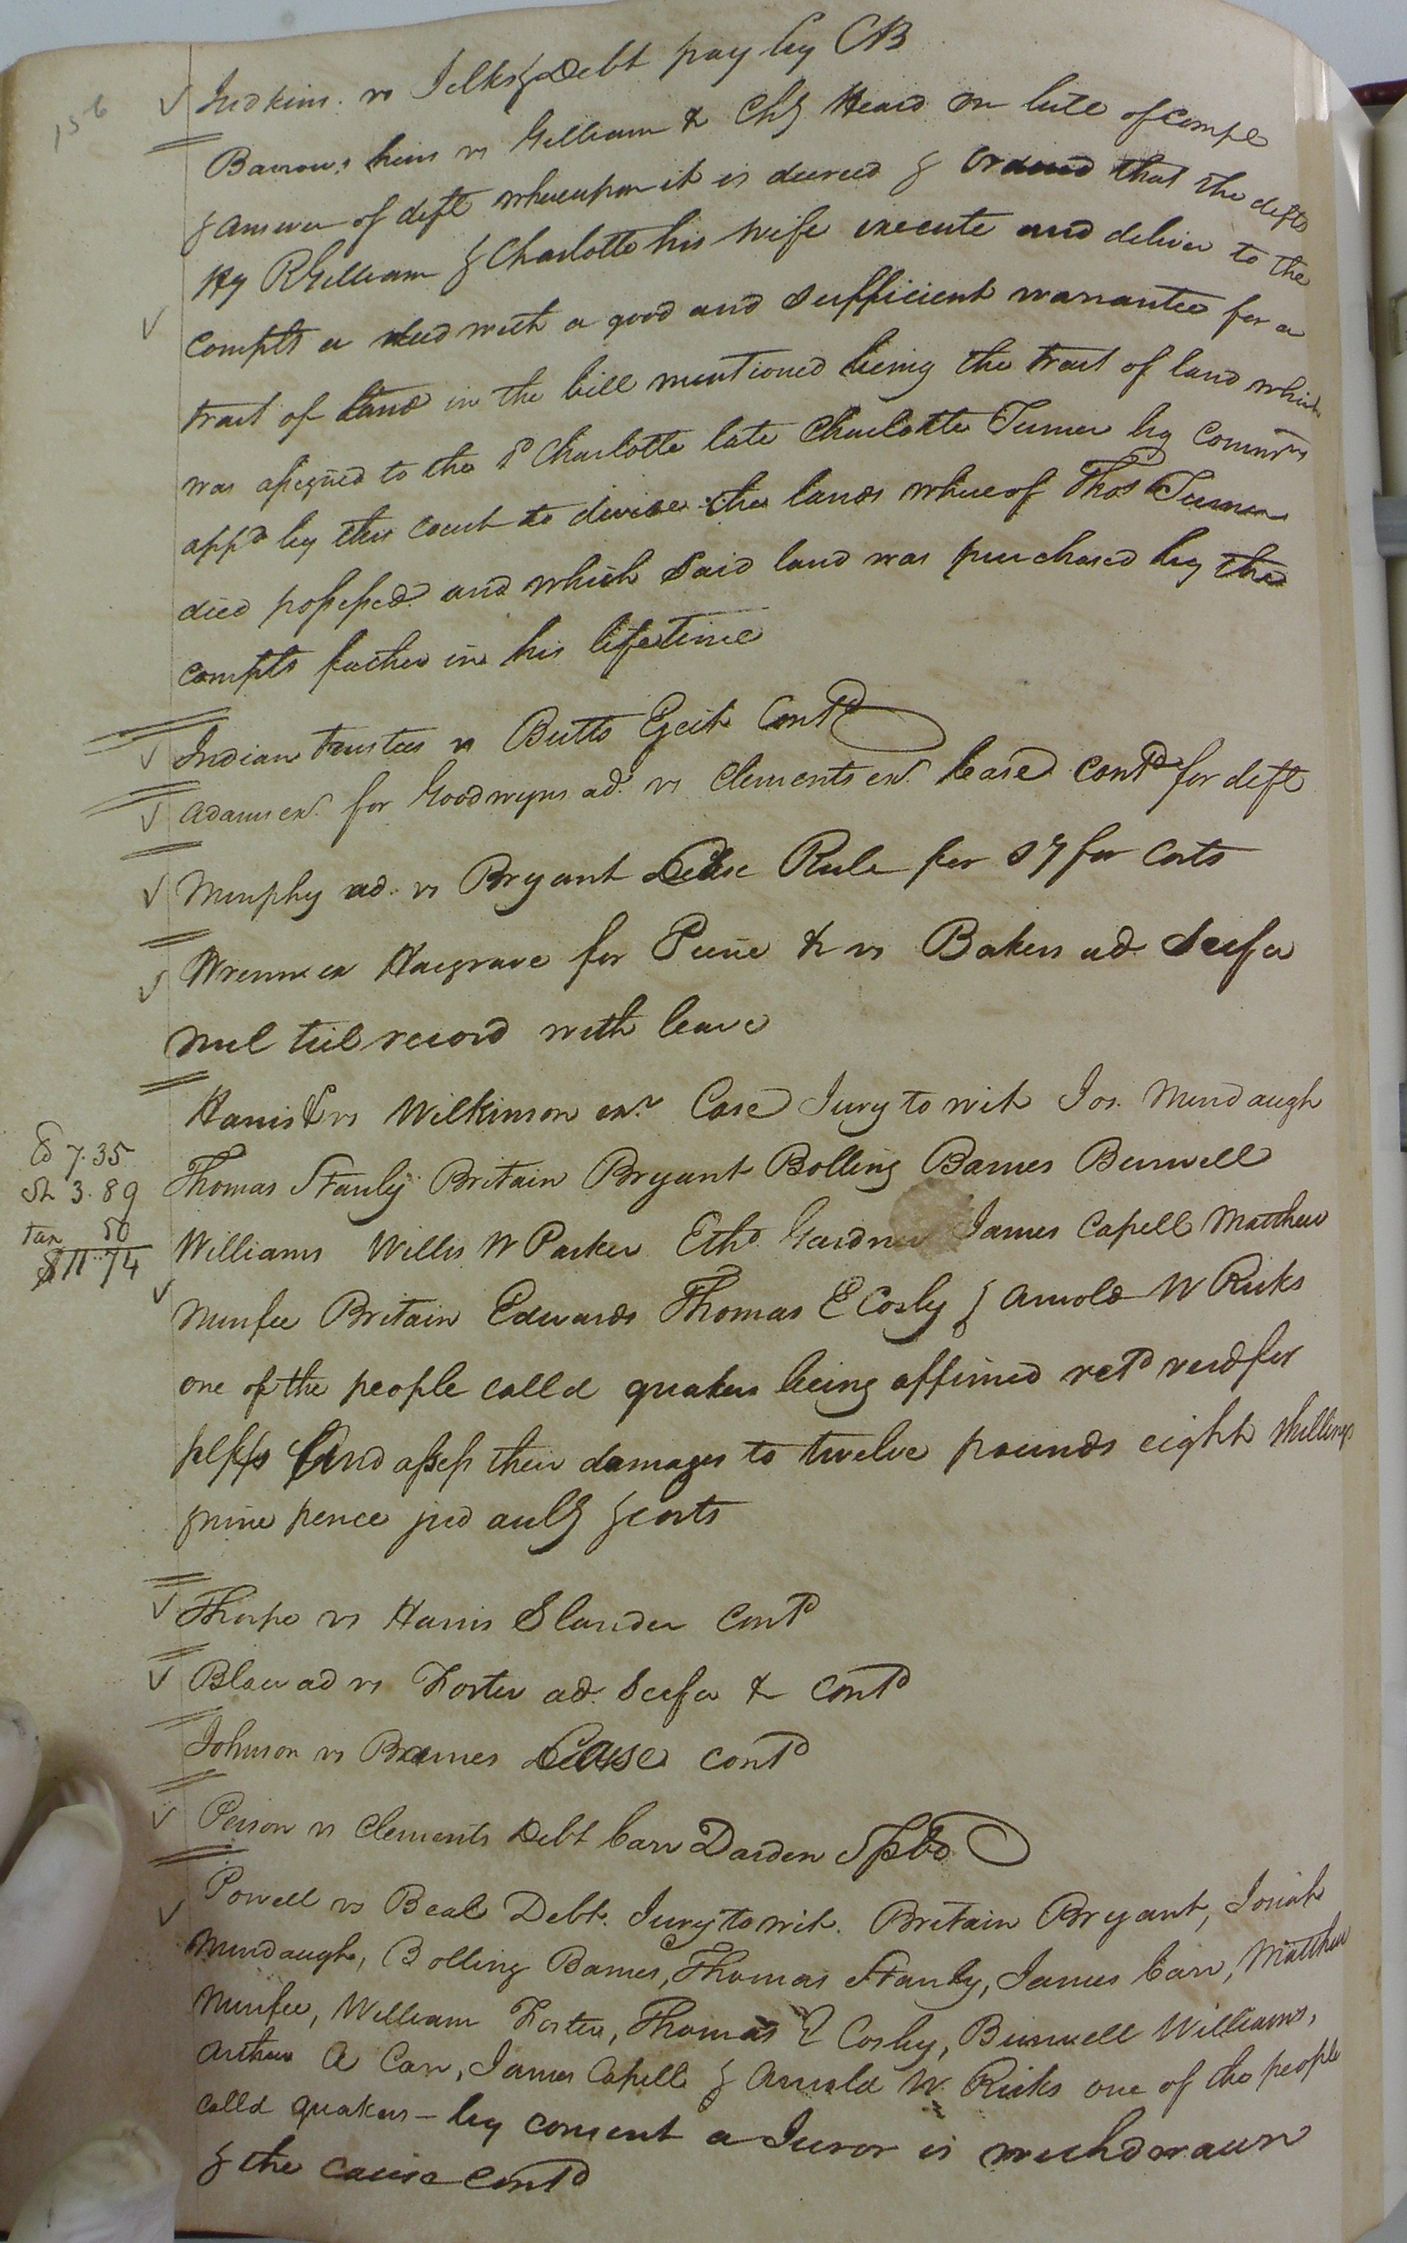 156
Judkins vs Jelks & Debt pay by CB
Barrow's heirs vs Gilliam & Chy Heard on bill of compl
& answer of deft whereupon it is decreed & ordered that the defts
Hy R Gilliam & Charlotte his wife execute and deliver to the
complts a deed with a good and sufficient warrantee for a
tract of land in the bill mentioned being the tract of land which
was assigned to the sd Charlotte late Charlotte Turner by Commrs
appd by this court to divide the lands whereof Thos Turner
died possessed and which said land was purchased by the
complts father in his lifetime
Indian trustees vs Butts Eject Contd
Adams exr for Goodwyns ad. vs Clements exr Case contd for deft
Murphy ad. vs Bryant Case Rule for Sy for Costs
Wrenn ex Hargrave for &c vs Bakers ad Scifa
nul tiel record with leave
Harris & vs Wilkinson exr Case Jury to wit Jos. Murdaugh
Thomas Stanly Britain Bryant Bolling Barnes Burwell
Williams Willis W Parker Ethd Gardner James Capell Matthew
Murfee Britain Edwards Thomas E Cosby & Arnold W Ricks
one of the people calld quakers being affirmed retd verd for
pltffs and assess their damages to twelve pounds eight shillings
& nine pence jud & costs
7.35
Sh 3.89
Tax 50
$11.74
Thorpe vs Harris Slander Contd
Blow ad vs Foster ad. Scifa & contd
Johnson vs Barnes Case contd
Person vs Clements Debt Carr Darden Spbd
Powell vs Beal Debt. Jury to wit. Britain Bryant, Josiah
Murdaugh, Bolling Barnes, Thomas Stanly, James Carr, Matthew
Murfee, William Foster, Thomas E Cosby, Burwell Williams,
Arthur A Carr, James Capell & Arnold W. Ricks one of the people
calld quakers – by consent a Juror is withdrawn
& the cause contd